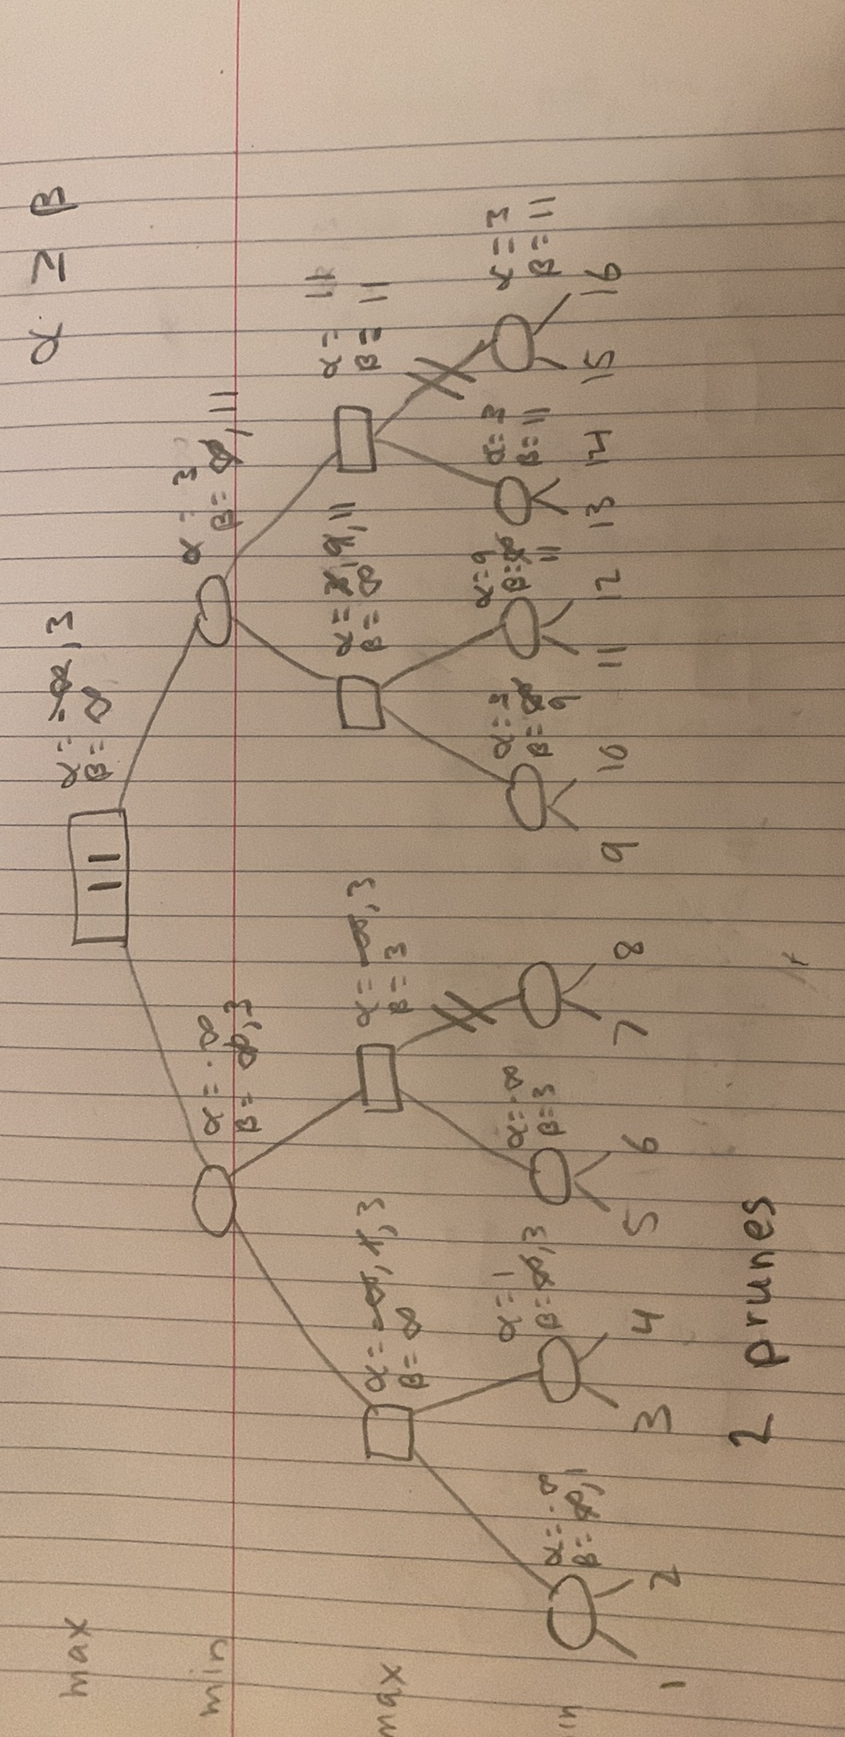 α ≥ β
max
α = -∞, 3
β = ∞
11
min
α = -∞
β = ∞, 3
α = 3
β = ∞, 11
max
α = -∞, 1, 3
β = ∞
α = -∞, 3
β = 3
α = 3, 9, 11
β = ∞
α = 11
β = 11
in
α = -∞
β = ∞, 1
α = 1
β = ∞, 3
α = -∞
β = 3
α = 3
β = ∞ 9
α = 9
β = ∞ 11
α = 3
β = 11
α = 3
β = 11
1 2 3 4 5 6 7 8 9 10 11 12 13 14 15 16
2 prunes